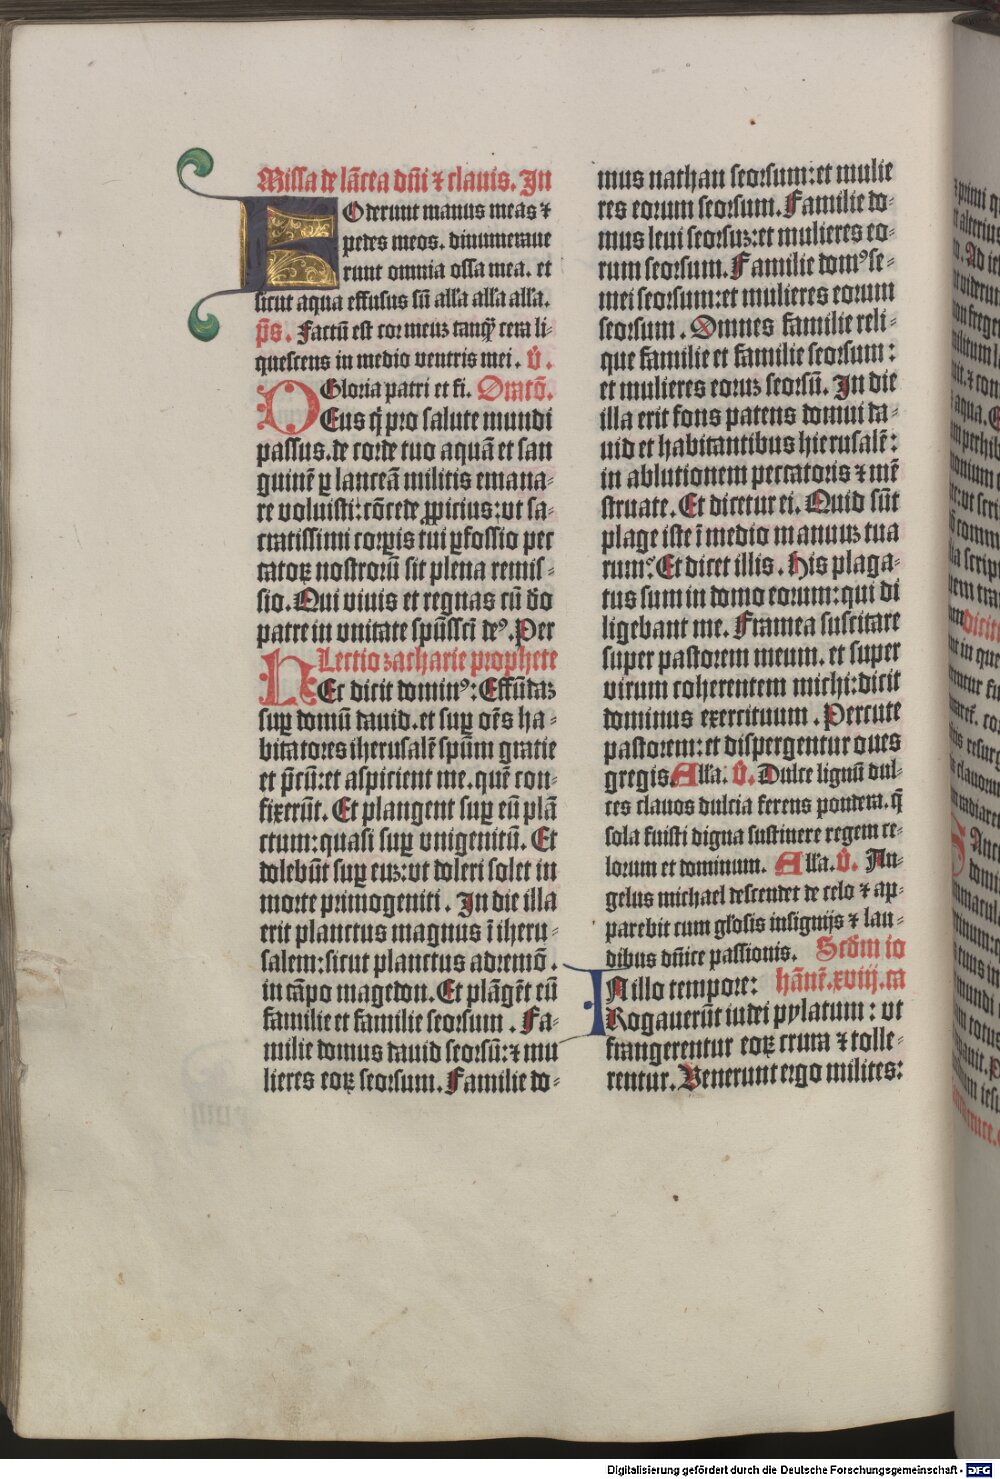 Missa de lācea dñi ⁊ clauis. In
FOderunt manus meas ⁊
pedes meos. dinumeraue
runt omnia ossa mea. et
sicut aqua effusus sū alľa alľa alľa.
p̄s. Factū est cor meuz tanqȝ cera li-
quescens in medio ventris mei. v̄.
Gloria patri et fi. Oratō.
DEus q̄ pro salute mundi
passus. de corde tuo aquā et san
guinē ꝑ lanceā militis emana-
re voluisti: cōcede ꝓpicius: vt sa-
cratissimi corꝑis tui ꝑfossio pec
catoꝝ nostrorū sit plena remis-
sio. Qui viuis et regnas cū dō
patre in vnitate spūssci deꝰ. Per
Lectio zacharie prophete
HEc dicit dominꝰ: Effūdaz
suꝑ domū dauid. et suꝑ oēs ha-
bitatores iherusalē spūm gratie
et p̄cū: et aspicient me. quē con-
fixerūt. Et plangent suꝑ eū plā
ctum: quasi suꝑ vnigenitū. Et
dolebūt suꝑ euz: vt doleri solet in
morte primogeniti. In die illa
erit planctus magnus ī iheru-
salem: sicut planctus adremō.
in cāpo magedon. Et plāgēt eū
familie et familie seorsum. Fa-
milie domus dauid seorsū: ⁊ mu
lieres eoꝝ seorsum. Familie do-
mus nathan seorsum: et mulie
res eorum seorsum. Familie do-
mus leui seorsuz: et mulieres eo-
rum seorsum. Familie domꝰ se-
mei seorsum: et mulieres eorum
seorsum. Omnes familie reli-
que familie et familie seorsum:
et mulieres eoruz seorsū. In die
illa erit fons patens domui da-
uid et habitantibus hierusalē:
in ablutionem peccatoris ⁊ mē
struate. Et dicetur ei. Quid sūt
plage iste ī medio manuuz tua
rum? Et dicet illis. His plaga-
tus sum in domo eorum: qui di
ligebant me. Framea suscitare
super pastorem meum. et super
virum coherentem michi: dicit
dominus exercituum. Percute
pastorem: et dispergentur oues
gregis. Alľa. v̄. Dulce lignū dul-
ces clauos dulcia ferens pondera. q̄
sola fuisti digna sustinere regem ce-
lorum et dominum. Alľa. v̄. An-
gelus michael descendet de celo ⁊ ap-
parebit cum gľosis insignijs ⁊ lau-
dibus dn̄ice passionis. Scďm io
IN illo tempore: hānē. xviij. ca
Rogauerūt iudei pylatum: vt
frangerentur eoꝝ crura ⁊ tolle-
rentur. Venerunt ergo milites:
Digitalisierung gefördert durch die Deutsche Forschungsgemeinschaft - DFG